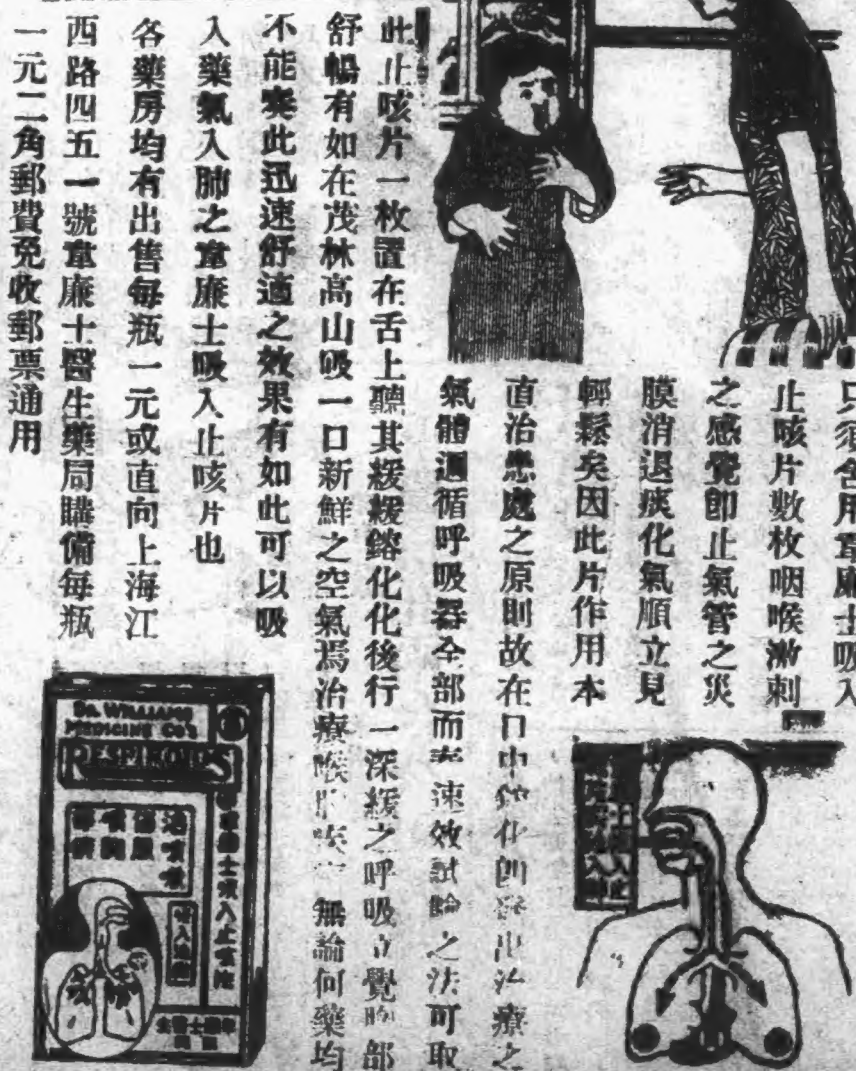 只須含用韋廉士吸入
止咳片數枚咽喉激刺
之感覺即止氣管之炎
膜消退痰化氣順立見
輕鬆矣因此片作用本
直治患處之原則故在口中鎔化即發出治療之
氣體週循呼吸器全部而奏速效試驗之法可取
此止咳片一枚置在舌上聽其緩緩鎔化化後行一深緩之呼吸立覺胸部
舒暢有如在茂林高山吸一口新鮮之空氣焉治療喉肺咳 無論何藥均
不能奏此迅速舒適之效果有如此可以吸
入藥氣入肺之韋廉士吸入止咳片也
各藥房均有出售每瓶一元或直向上海江
西路四五一號韋廉士醫生藥局購備每瓶
一元二角郵費免收郵票通用
DR. WILLIAMS
MEDICINE CO'S
RESPIROIDS
韋廉士吸入止咳片